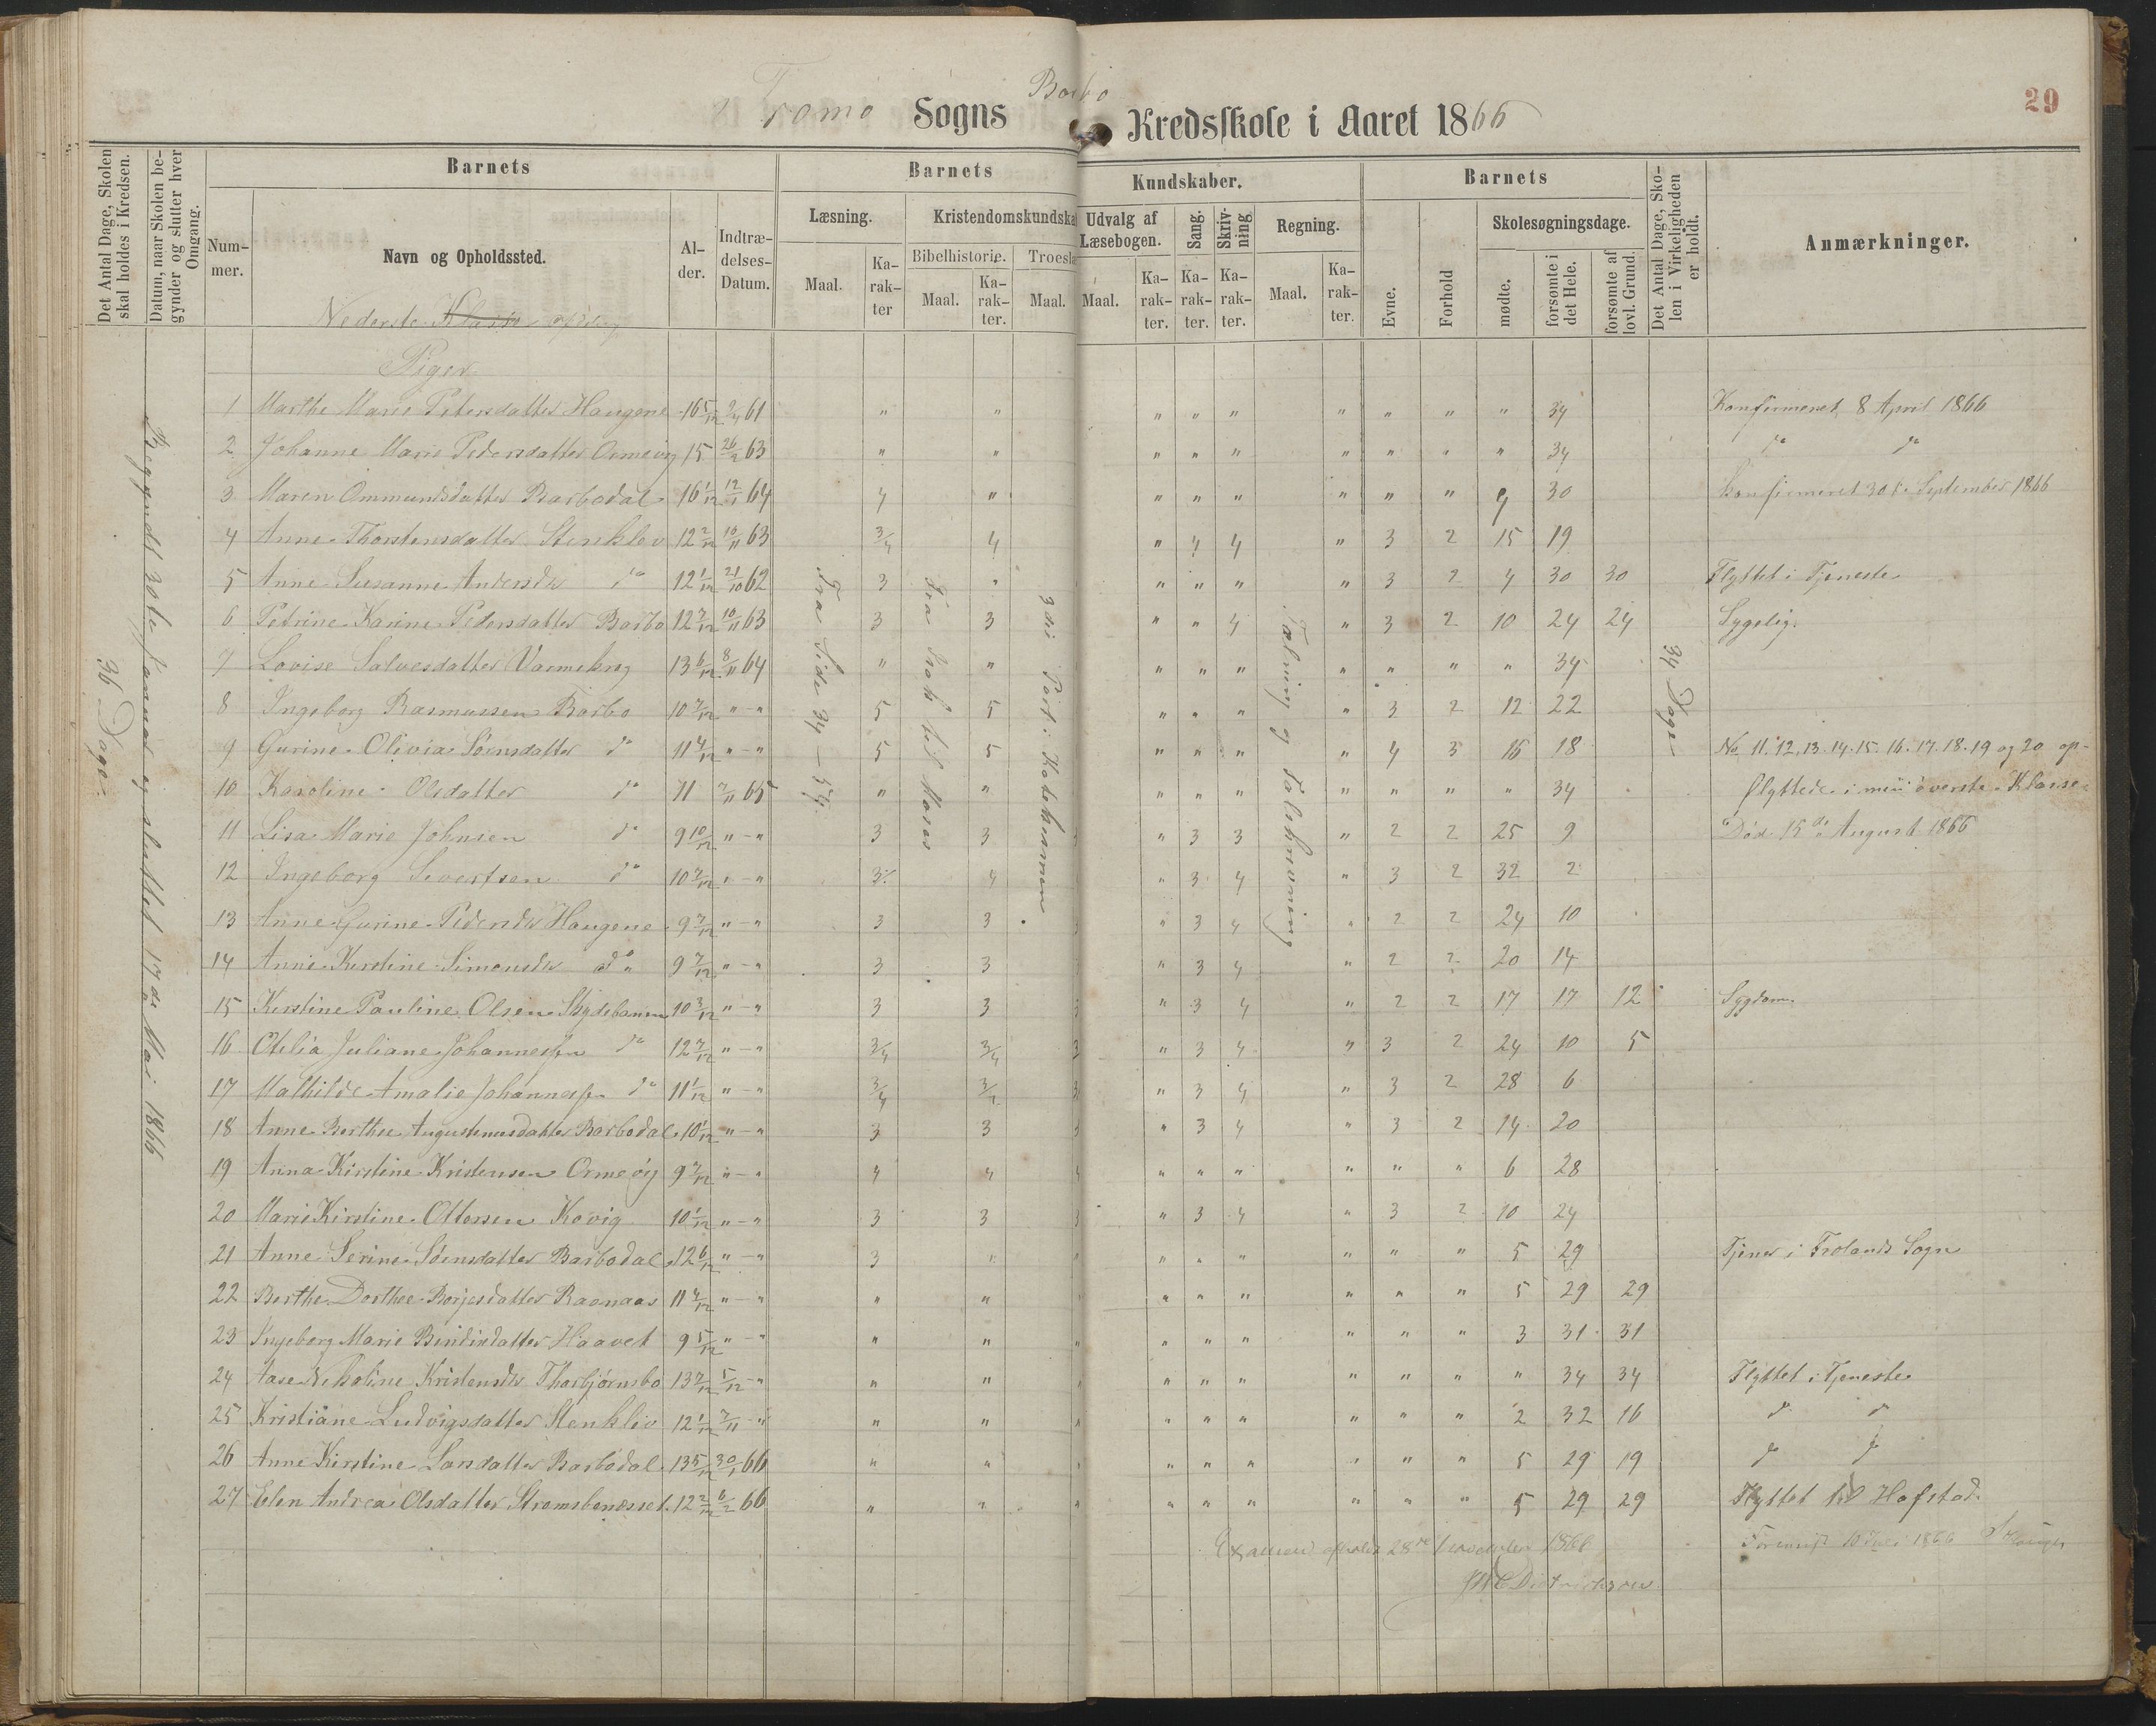 Tromø Sogns Barbo Kredsskole i Aaret 1866
29
Det Antal Dage, Skolen skal holdes i Kredsen.
Datum, naar Skolen begynder og slutter hver Omgang.
Barnets
Nummer.
Navn og Opholdssted.
Alder.
Indtrædelses-Datum.
Barnets Kundskaber.
Læsning.
Maal.
Karakter
Kristendomskundska
Bibelhistorie.
Maal.
Karakter.
Troeslæ
Maal.
Udvalg af Læsebogen.
Maal.
Karakter.
Sang.
Karakter.
Skrivning
Karakter.
Regning.
Maal.
Karakter.
Barnets
Evne.
Forhold
Skolesøgningsdage.
mødte.
forsømte i det Hele.
forsømte af lovl. Grund.
Det Antal Dage, Skolen i Virkeligheden er holdt.
Anmærkninger.
Nederste Klasse
Piger
36 Dage.
Begyndt 30te Januar og sluttet 17de Mai 1866
Fra Side 34 — 54.
Fra Isak til Moses
3die Part i Katekismen
Talning og Talskrivning
34 Dage
1 Marthe Marie Petersdatter Haugene 16 5/12 2/4 61 " " " " " " " " " 34 Konfirmeret 8 April 1866
2 Johanne Marie Pedersdatter Ormevig 15 26/2 63 " " " " " " " " " 34 do do
3 Maren Ommundsdatter Barbodal 16 1/12 12/1 64 4 " " " " " " " 4 30 Konfirmeret 30te September 1866
4 Anne Thorstensdatter Stenklev 12 2/12 10/11 63 3/4 4 " 4 4 " 3 2 15 19
5 Anne Susanne Andersdtr do 12 1/12 21/10 62 3 " " " " " 3 2 4 30 30 Flyttet i Tjeneste
6 Petrine Karine Pedersdatter Barbo 12 7/12 10/11 63 3 3 " " 4 " 3 2 10 24 24 Sygelig.
7 Lovise Salvesdatter Varmekrog 13 6/12 8/11 64 " " " " " " " " " 34
8 Ingeborg Rasmussen Barbo 10 7/12 " - " 5 5 " " " " 3 2 12 22
9 Gurine Olivia Sørensdatter do 11 4/12 " - " 5 5 " " " " 4 3 16 18 No 11.12.13.14.15.16.17.18.19 og 20 op-
10 Karoline Olsdatter do 11 7/11 65 " " " " " " " " " 34 flyttede i min øverste Klasse
11 Lisa Marie Johnsen do 9 10/12 " - " 3 3 3 " 3 3 " 2 2 25 9 Død 15de August 1866
12 Ingeborg Sivertsen do 10 7/12 " - " 3 4 " 3 4 " 3 2 32 2
13 Anne Gurine Pedersdtr Haugene 9 7/12 " - " 3 3 3 " 3 4 " 2 2 24 10
14 Anne Kirstine Simonsdtr do 9 7/12 " - " 3 3 " 3 4 " 2 2 20 14
15 Kirstine Pauline Olsen Skydebanen 10 3/12 " - " 3 3 3 " 3 4 " 2 2 17 17 12 Sygdom.
16 Otelia Juliane Johannessen do 12 7/12 " - " 3/4 3/4 3 " 3 4 " 3 2 24 10 5
17 Mathilde Amalie Johannessen do 11 1/12 " - " 3/4 3 " 3 4 " 3 2 28 6
18 Anne Berthee Augustinusdatter Barbodal 10 1/12 " - " 3 3 3 " 3 4 " 3 2 14 20
19 Anna Kirstine Kristensen Ormevig 9 7/12 " - " 4 4 4 " " " " " " 6 28
20 Marie Kirstine Ottersen Kovig 10 1/12 " - " 3 3 3 " 3 4 " 3 2 10 24
21 Anne Serine Sørensdatter Barbodal 12 6/12 " - " 3 " " " " " " " " 5 29 Tjener i Frolands Sogn
22 Berthe Dorthee Borjesdatter Rasnaas 11 4/12 " - " " " " " " " " " 5 29 29
23 Ingeborg Marie Bendixdatter Haavet 9 5/12 " - " " " " " " " " " " 3 31 31
24 Aase Nikoline Kristensdtr Thorbjørnsbo 13 7/12 5/12 - " " " " " " " " " " " 34 34 Flyttet i Tjeneste
25 Kristiane Ludvigsdatter Stenkliv 12 1/12 7/11 - " " " " " " " " " " 2 32 16 do do
26 Anne Kirstine Larsdatter Barbodal 13 5/12 30/1 66 " " " " " " " " " 5 29 19 do do
27 Elen Andrea Olsdatter Strømsbunesset 12 2/12 6/2 66 " " " " " " " " " 5 29 29 Flyttet til Hofstad.
Examen afholdt 28de November 1866
Dietrichson
Forevist 10 Juli 1866